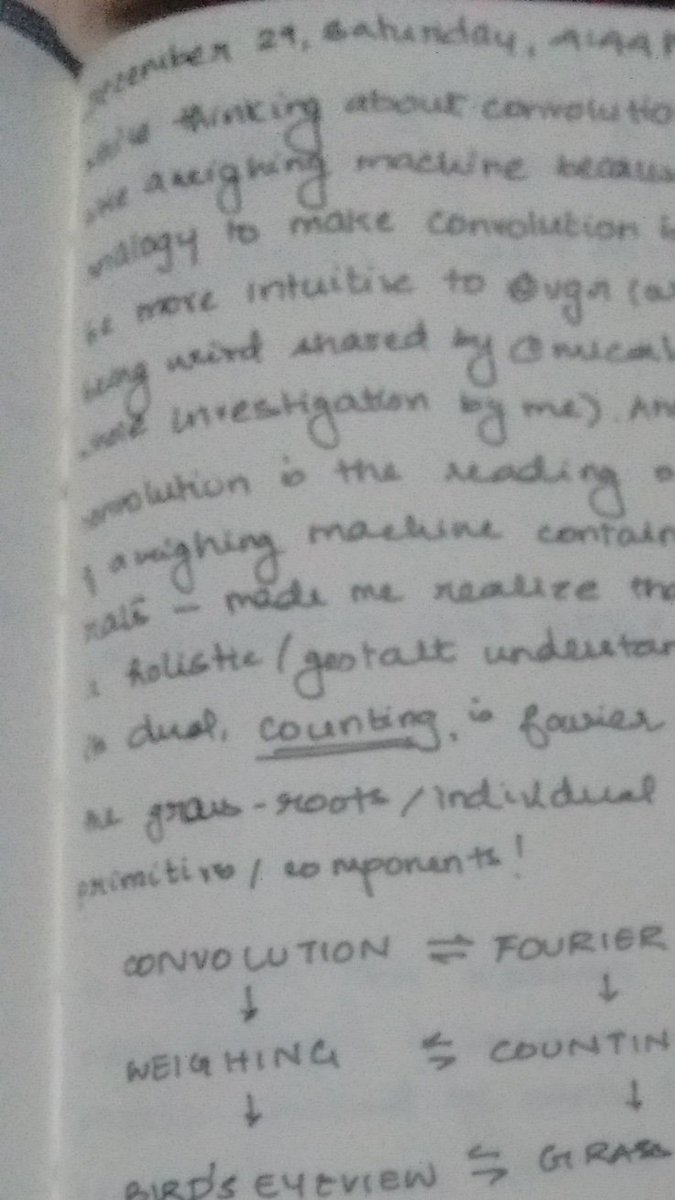 December 29, Saturday,
thinking about convolutio
a weighing machine becaus
analogy to make convolution i
be more intuitive to @vgr (as
being weird shared by
investigation by me). An
convolution is the reading o
a weighing machine contain
- made me realize tha
holistic / gestalt understan
dual, counting, is fourier
grass-roots / individual
primitive / components!
CONVOLUTION ⇌ FOURIER
↓ ↓
WEIGHING ⇆ COUNTIN
↓ ↓
BIRD'S EYEVIEW ⇆ GRASS